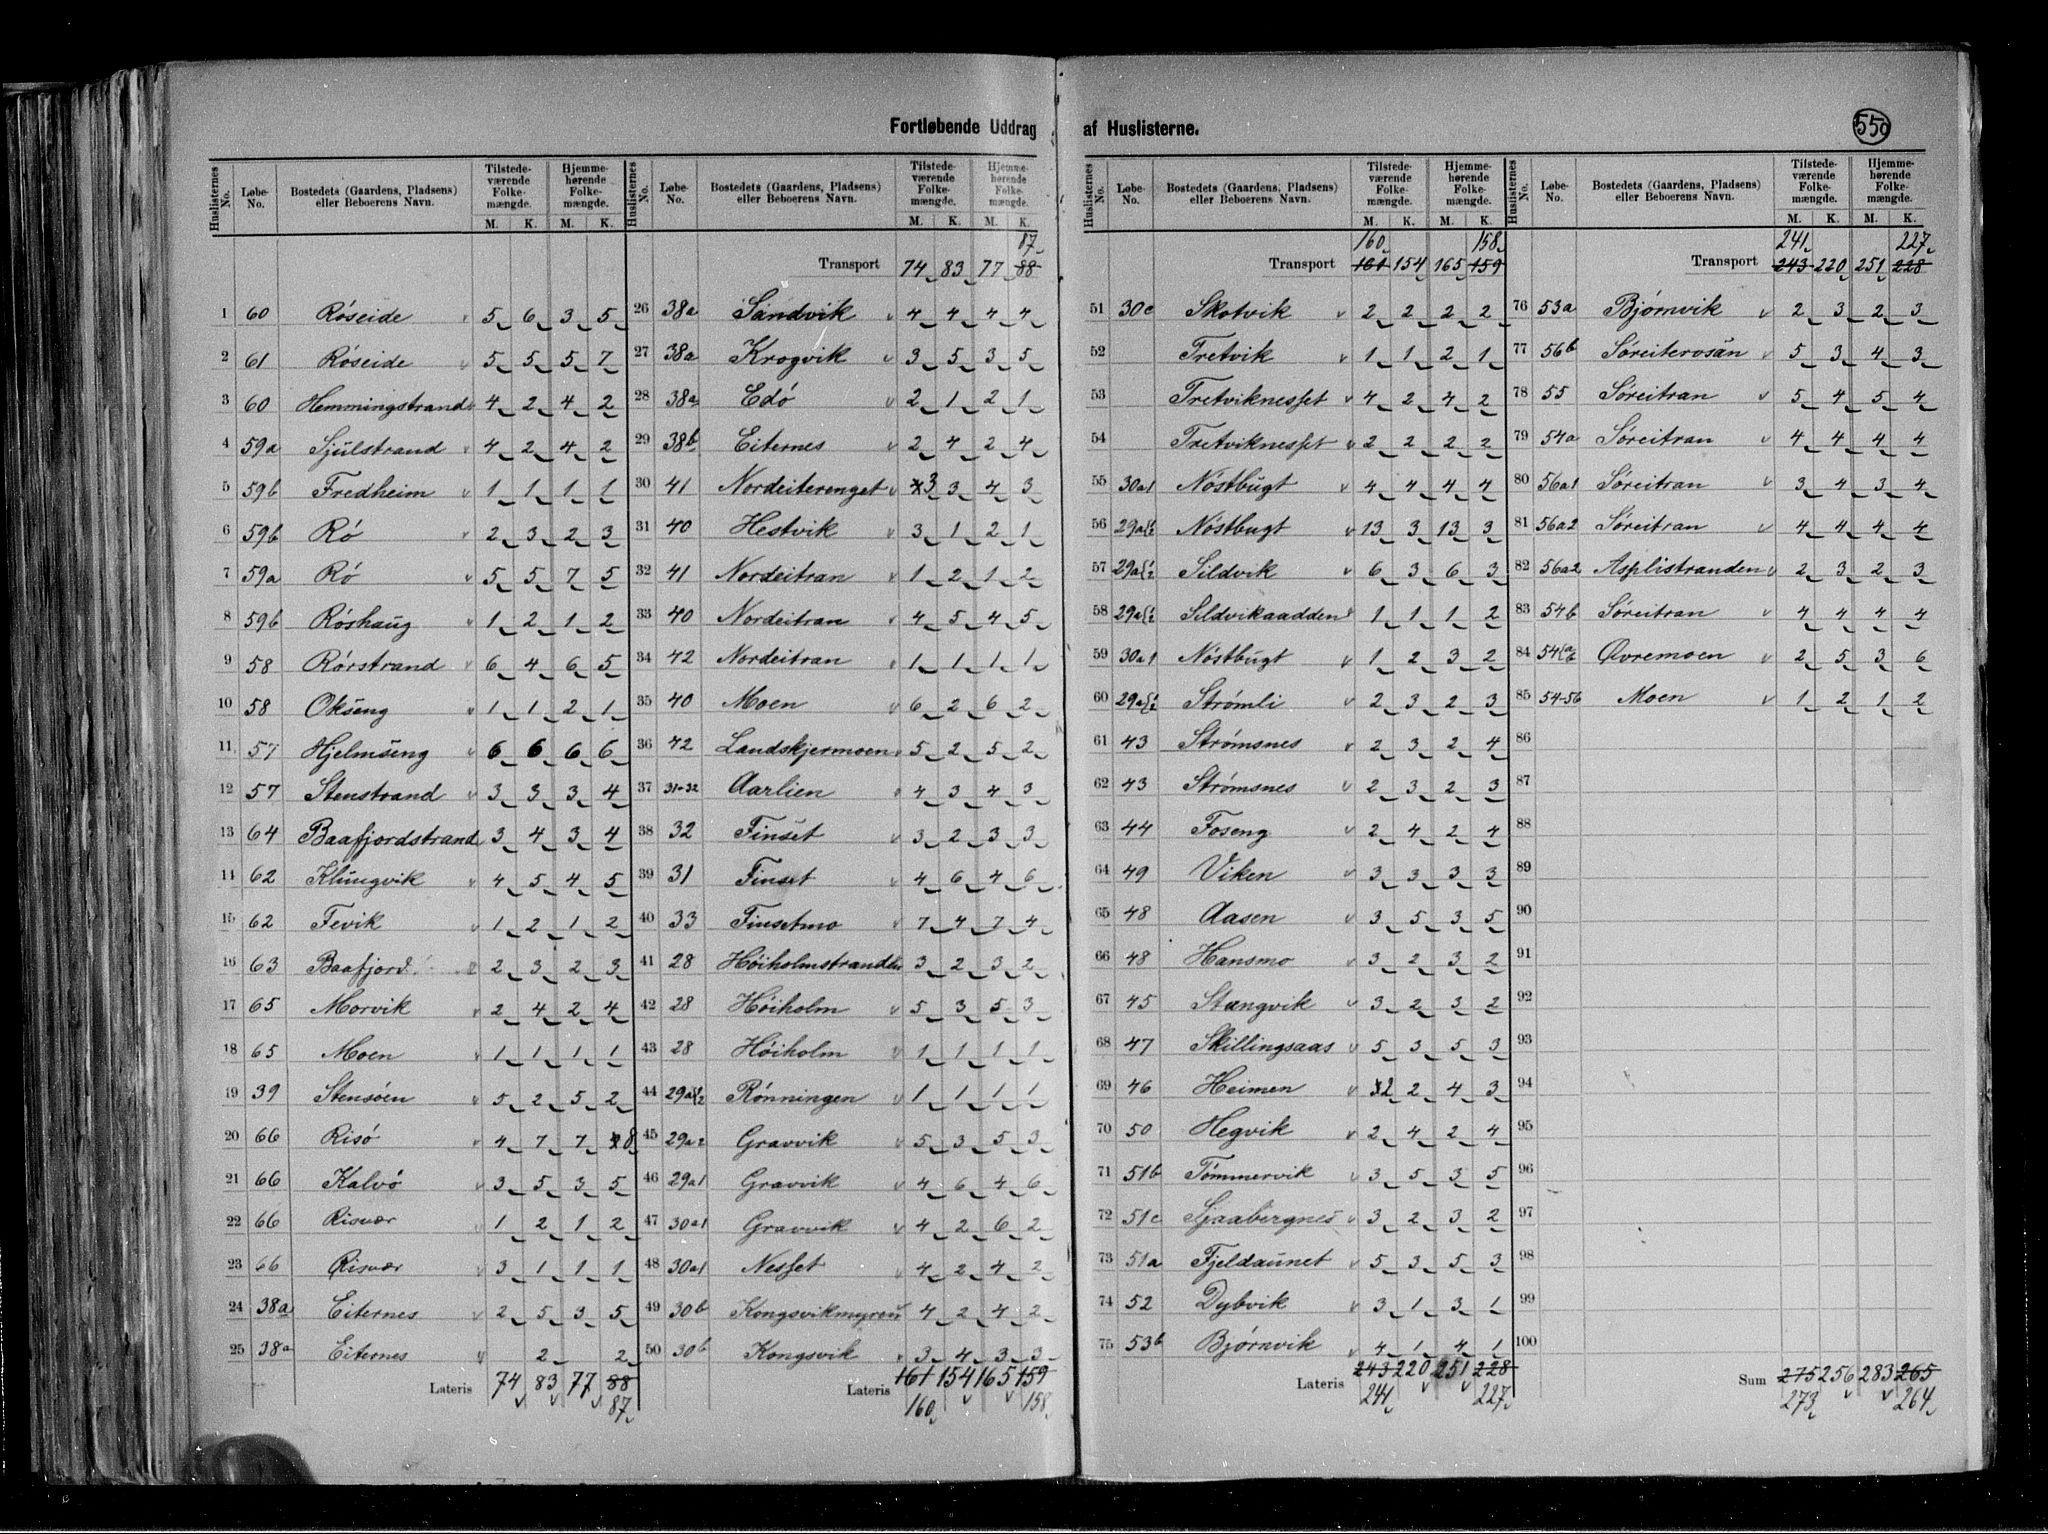 Fortløbende Uddrag af Huslisterne.
550
Huslisternes No. Løbe-No. Bostedets (Gaardens, Pladsens) eller Beboerens Navn. Tilstedeværende Folkemængde. M. K. Hjemmehørende Folkemængde. M. K.
1 60 Röseide 5 6 3 5
2 61 Röseide 5 5 5 7
3 60 Hemmingstrand 4 2 4 2
4 59a Sjülstrand 4 2 4 2
5 59b Fredheim 1 1 1 1
6 59b Rö 2 3 2 3
7 59a Rö 5 5 7 5
8 59b Röshaug 1 2 1 2
9 58 Rörstrand 6 4 6 5
10 58 Okseng 1 1 2 1
11 57 Hjelmseng 6 6 6 6
12 57 Stenstrand 3 3 3 4
13 64 Baafjordstrand 3 4 3 4
14 62 Klungvik 4 5 4 5
15 62 Fevik 1 2 1 2
16 63 Baafjord 2 3 2 3
17 65 Morvik 2 4 2 4
18 65 Moen 1 1 1 1
19 39 Stensöen 5 2 5 2
20 66 Risö 4 7 7 8
21 66 Kalvö 3 5 3 5
22 66 Risvær 1 2 1 2
23 66 Risvær 3 1 1 1
24 38a Eiternes 2 5 3 5
25 38a Eiternes 2 2
Lateris 74 83 77 88
87
Huslisternes No. Løbe-No. Bostedets (Gaardens, Pladsens) eller Beboerens Navn. Tilstedeværende Folkemængde. M. K. Hjemmehørende Folkemængde. M. K.
87
Transport 74 83 77 88
26 38a Sandvik 4 4 4 4
27 38a Krogvik 3 5 3 5
28 38a Edö 2 1 2 1
29 38b Eiternes 2 4 2 4
30 41 Nordeiterenget 3 3 4 3
31 40 Hestvik 3 1 2 1
32 41 Nordeitran 1 2 1 2
33 40 Nordeitran 4 5 4 5
34 42 Nordeitran 1 1 1 1
35 40 Moen 6 2 6 2
36 42 Landskjermoen 5 2 5 2
37 31-32 Aarlien 4 3 4 3
38 32 Finset 3 2 3 3
39 31 Finset 4 6 4 6
40 33 Finsetmo 7 4 7 4
41 28 Höiholmstranden 3 2 3 2
42 28 Höiholm 5 3 5 3
43 28 Höiholm 1 1 1 1
44 29a{1/2 Rönningen 1 1 1 1
45 29a2 Gravvik 5 3 5 3
46 29a1 Gravvik 4 6 4 6
47 30a1 Gravvik 4 2 6 2
48 30a1 Nesset 4 2 4 2
49 30b Kongsvikmyren 4 2 4 2
50 30b Kongsvik 3 4 3 3
Lateris 161 154 165 159
160 158
Huslisternes No. Løbe-No. Bostedets (Gaardens, Pladsens) eller Beboerens Navn. Tilstedeværende Folkemængde. M. K. Hjemmehørende Folkemængde. M. K.
160 158
Transport 161 154 165 159
51 30c Skotvik 2 2 2 2
52 Tretvik 1 1 2 1
53 Tretviknesset 4 2 4 2
54 Tretviknesset 2 2 2 2
55 30a1 Nöstbugt 4 4 4 4
56 29a{1/2 Nöstbugt 13 3 13 3
57 29a{1/2 Sildvik 6 3 6 3
58 29a{1/2 Sildvikaadden 1 1 1 2
59 30a1 Nöstbugt 1 2 3 2
60 29a{1/2 Strømli 2 3 2 3
61 43 Strømsnes 2 3 2 4
62 43 Strømsnes 2 3 2 3
63 44 Foseng 2 4 2 4
64 49 Viken 3 3 3 3
65 48 Aasen 3 5 3 5
66 48 Hansmo 3 2 3 2
67 45 Stængvik 3 2 3 2
68 47 Skillingsaas 5 3 5 3
69 46 Heimen 2 2 4 3
70 50 Hegvik 2 4 2 4
71 51b Tömmervik 3 5 3 5
72 51c Sjaabergnes 3 2 3 2
73 51a Fjeldaunet 5 3 5 3
74 52 Dybvik 3 1 3 1
75 53b Bjørnvik 4 1 4 1
Lateris 243 220 251 228
241 227
Huslisternes No. Løbe-No. Bostedets (Gaardens, Pladsens) eller Beboerens Navn. Tilstedeværende Folkemængde. M. K. Hjemmehørende Folkemængde. M. K.
241 227
Transport 243 220 251 228
76 53a Bjørnvik 2 3 2 3
77 56b Søreiterosan 5 3 4 3
78 55 Søreitran 5 4 5 4
79 54a Søreitran 4 4 4 4
80 56a1 Søreitran 3 4 3 4
81 56a2 Søreitran 4 4 4 4
82 56a2 Asplistranden 2 3 2 3
83 54b Søreitran 4 4 4 4
84 54{a/b Øvremoen 2 5 3 6
85 54-56 Moen 1 2 1 2
86
87
88
89
90
91
92
93
94
95
96
97
98
99
100
Sum 275 256 283 265
273 264